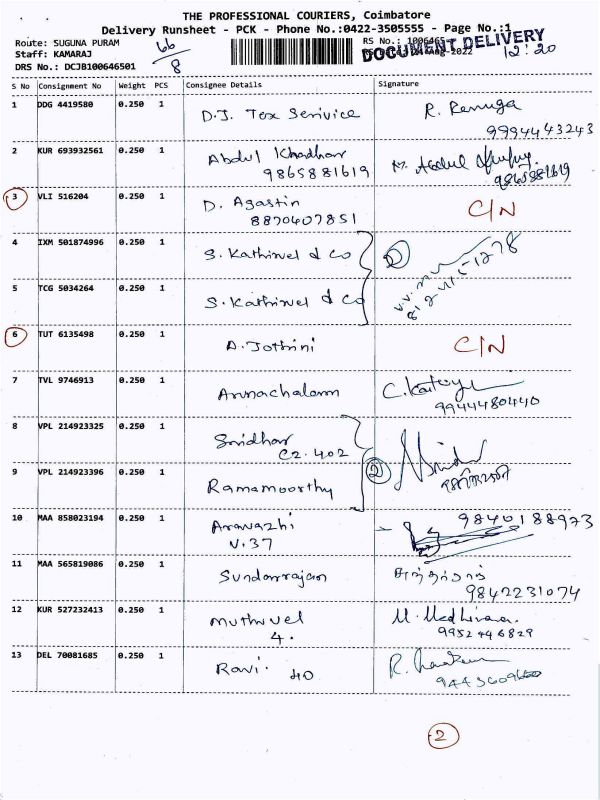 THE PROFESSIONAL COURIERS, Coimbatore
Delivery Runsheet - PCK - Phone No.:0422-3505555 - Page No.:1
Route: SUGUNA PURAM
Staff: KAMARAJ
DRS No.: DCJB100646501
66/8
DOCUMENT DELIVERY
12:20
S No Consignment No Weight PCS Consignee Details Signature
1 DDG 4419580 0.250 1 D.J. Tex Serivice R. Renuga
9994443243
2 KUR 693932561 0.250 1 Abdul Khadhar M. Abdul
9865881619 9865881619
3 VLI 516204 0.250 1 D. Agastin C/N
8870407851
4 IXM 501874996 0.250 1 S. Kathirvel & Co 2
5 TCG 5034264 0.250 1 S. Kathirvel & Co
6 TUT 6135498 0.250 1 A. Jothini C/N
7 TVL 9746913 0.250 1 Arunachalam
9944480440
8 VPL 214923325 0.250 1 Sridhar
C2.402
2
9 VPL 214923396 0.250 1 Ramamoorthy
10 MAA 858023194 0.250 1 Aravazhi 9840188973
V.37
11 MAA 565819086 0.250 1 Sundarrajan
9842231074
12 KUR 527232413 0.250 1 Muthuvel
4. 9952446829
13 DEL 70081685 0.250 1 Ravi. 40
2